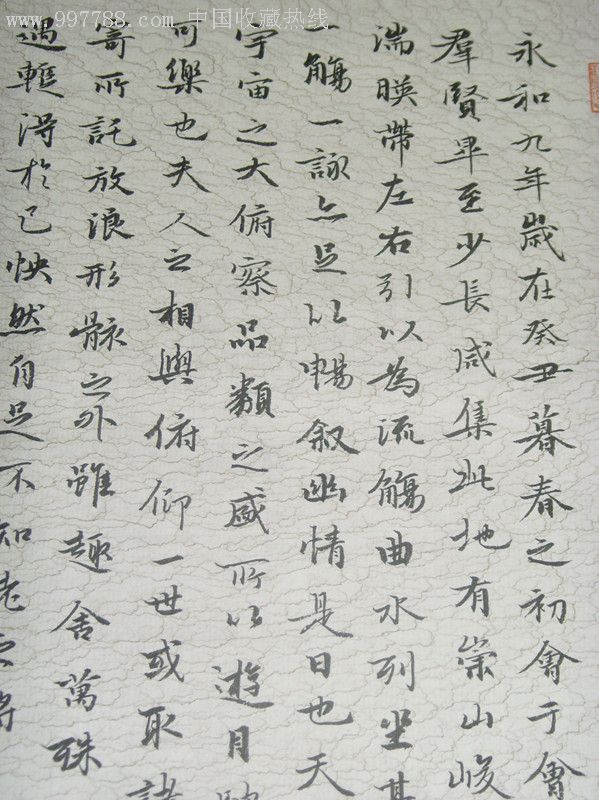 www.997788.com 中国收藏热线
永和九年歲在癸丑暮春之初會于會
羣賢畢至少長咸集此地有崇山峻
湍暎帶左右引以為流觴曲水列坐其
一觴一詠亦足以暢叙幽情是日也天
宇宙之大俯察品類之盛所以遊目騁
可樂也夫人之相與俯仰一世或取諸
寄所託放浪形骸之外雖趣舍萬殊
遇輒得於己怏然自足不知老之將